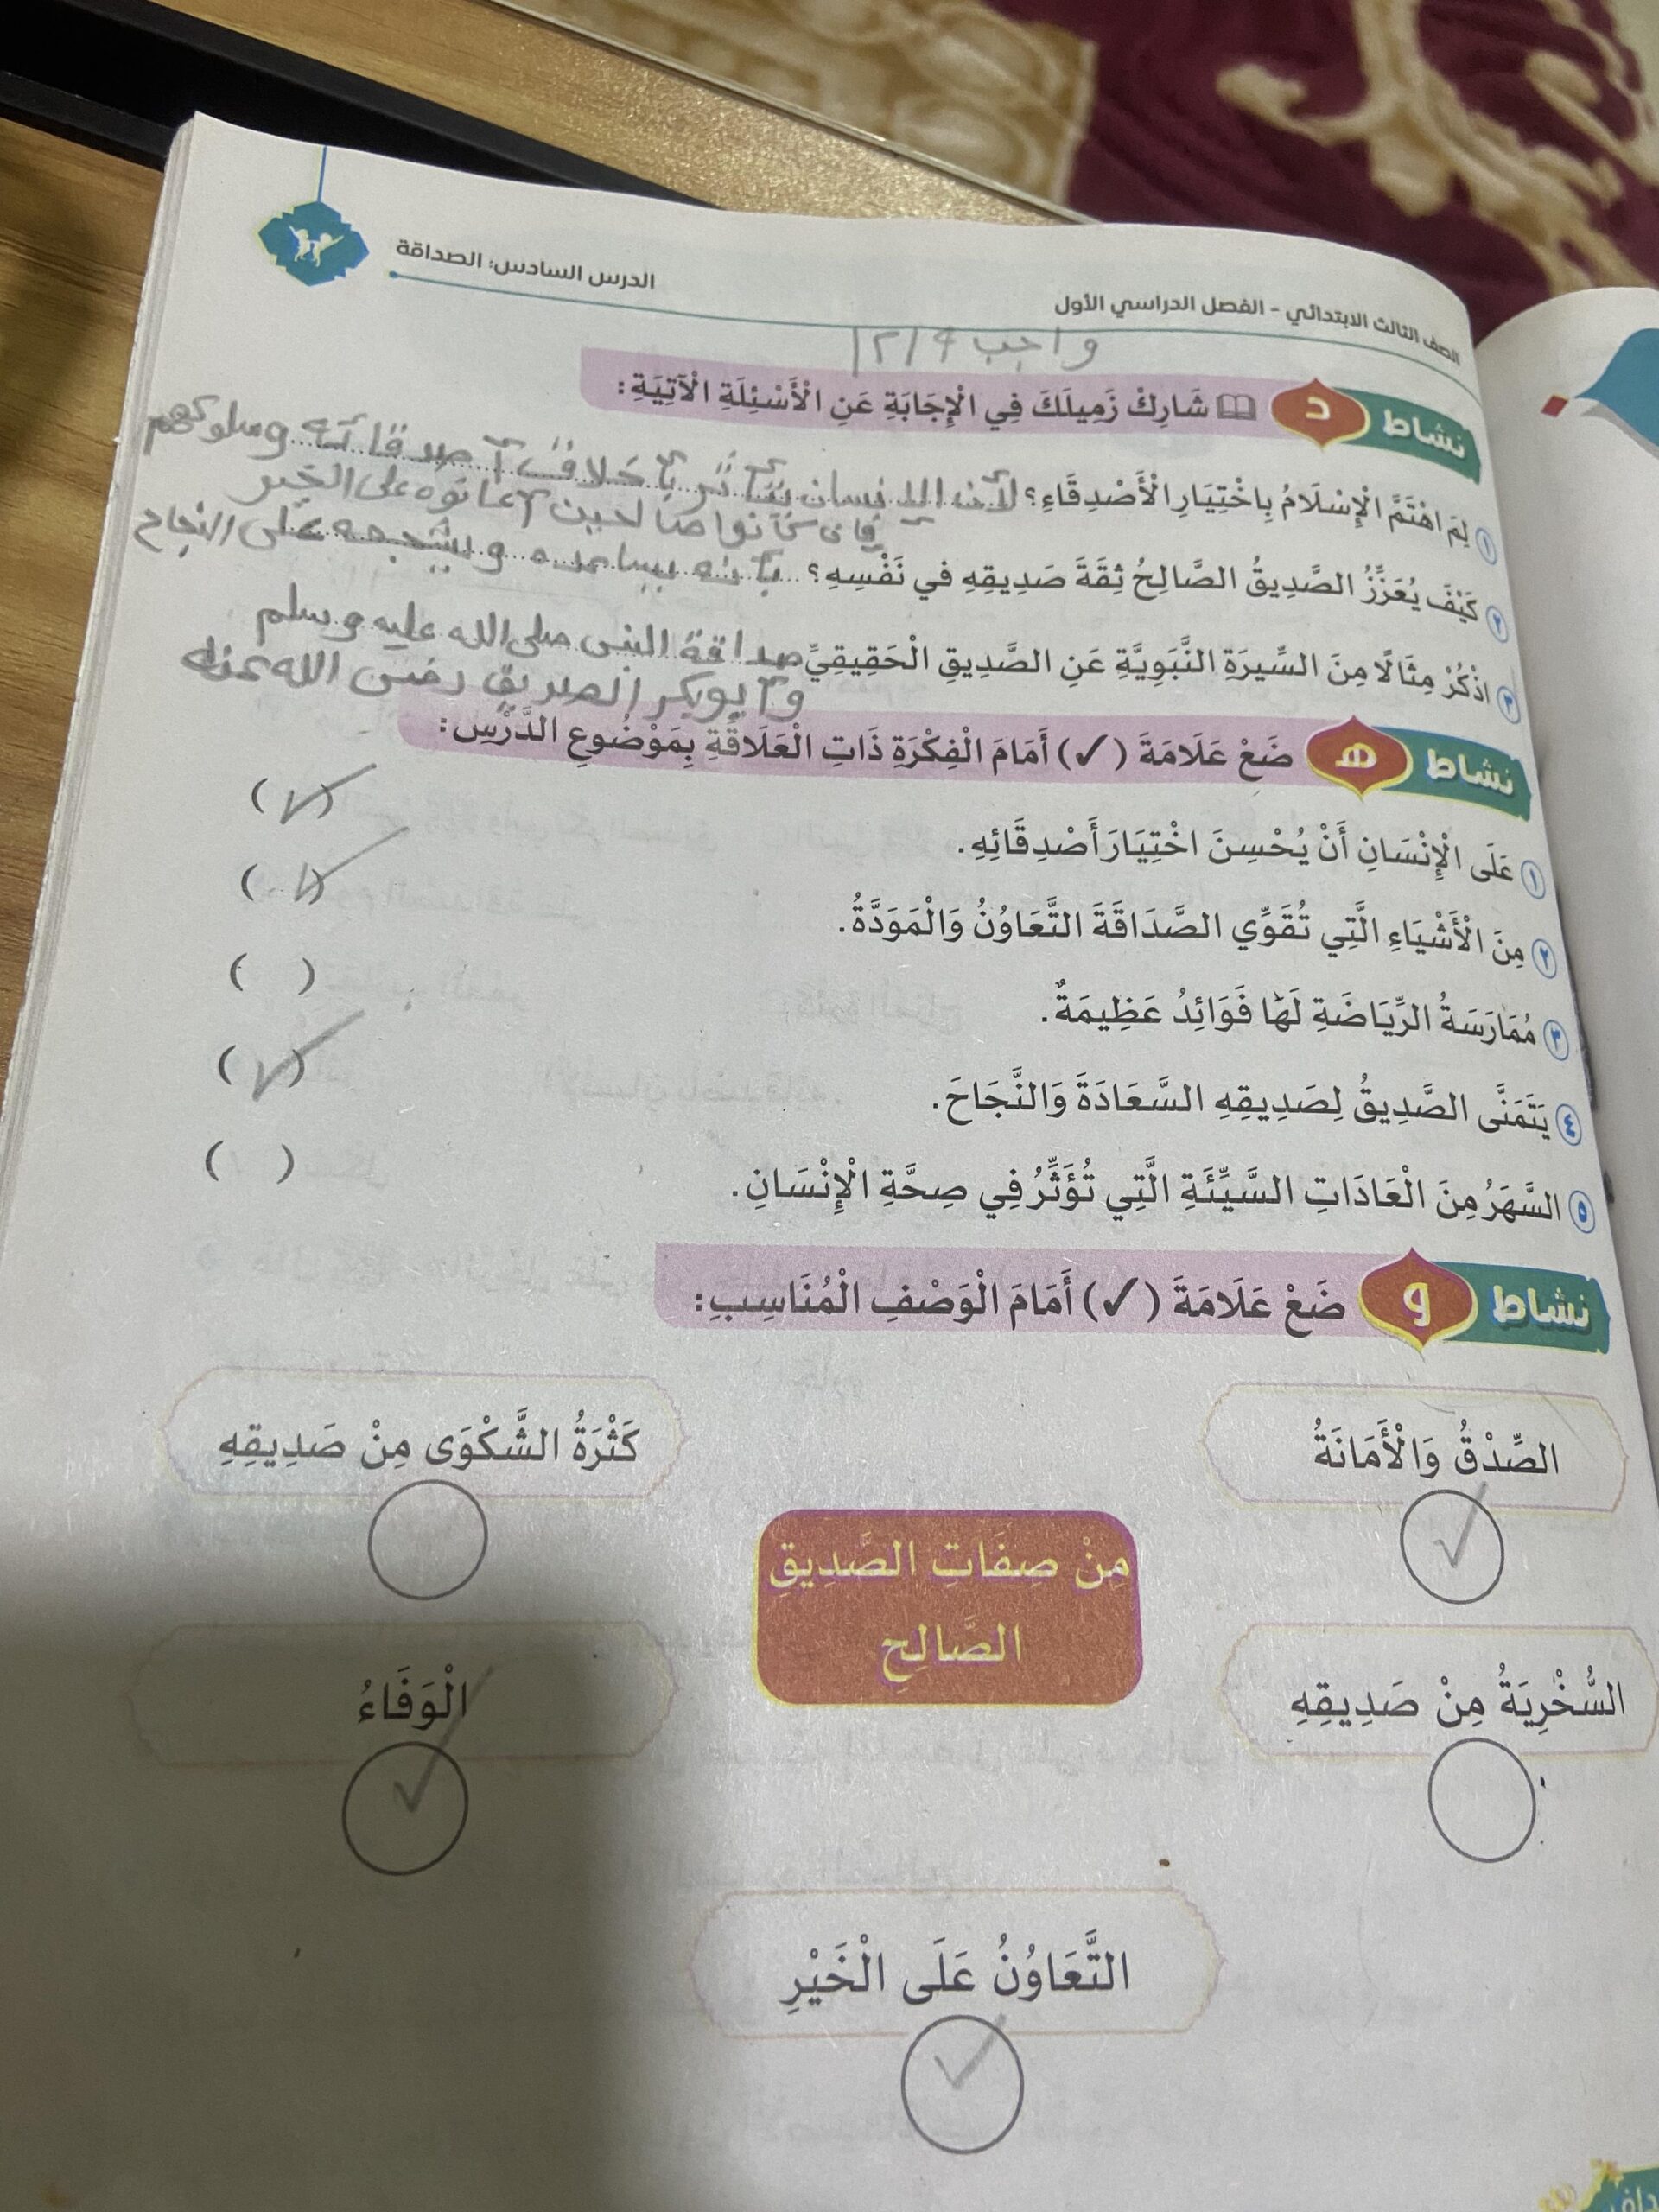 الصف الثالث الابتدائي - الفصل الدراسي الأول
الدرس السادس: الصداقة
واجب ١٢/٩
نشاط د شَارِكْ زَمِيلَكَ فِي الْإِجَابَةِ عَنِ الْأَسْئِلَةِ الْآتِيَةِ:
١ لِمَ اهْتَمَّ الْإِسْلَامُ بِاخْتِيَارِ الْأَصْدِقَاءِ؟ لأن الإنسان يتأثر بأخلاق أصدقائه وسلوكهم
فإن كانوا صالحين أعانوه على الخير
٢ كَيْفَ يُعَزِّزُ الصَّدِيقُ الصَّالِحُ ثِقَةَ صَدِيقِهِ في نَفْسِهِ؟ بأنه يساعده ويشجعه على النجاح
٣ اذْكُرْ مِثَالًا مِنَ السِّيرَةِ النَّبَوِيَّةِ عَنِ الصَّدِيقِ الْحَقِيقِيِّ صداقة النبى صلى الله عليه وسلم
وأبوبكر الصديق رضى الله عنه
نشاط هـ ضَعْ عَلَامَةَ (✓) أَمَامَ الْفِكْرَةِ ذَاتِ الْعَلَاقَةِ بِمَوْضُوعِ الدَّرْسِ:
١ عَلَى الْإِنْسَانِ أَنْ يُحْسِنَ اخْتِيَارَ أَصْدِقَائِهِ. (✓)
٢ مِنَ الْأَشْيَاءِ الَّتِي تُقَوِّي الصَّدَاقَةَ التَّعَاوُنُ وَالْمَوَدَّةُ. (✓)
٣ مُمَارَسَةُ الرِّيَاضَةِ لَهَا فَوَائِدُ عَظِيمَةٌ. ( )
٤ يَتَمَنَّى الصَّدِيقُ لِصَدِيقِهِ السَّعَادَةَ وَالنَّجَاحَ. (✓)
٥ السَّهَرُ مِنَ الْعَادَاتِ السَّيِّئَةِ الَّتِي تُؤَثِّرُ فِي صِحَّةِ الْإِنْسَانِ. ( )
نشاط و ضَعْ عَلَامَةَ (✓) أَمَامَ الْوَصْفِ الْمُنَاسِبِ:
الصِّدْقُ وَالْأَمَانَةُ
✓
كَثْرَةُ الشَّكْوَى مِنْ صَدِيقِهِ
مِنْ صِفَاتِ الصَّدِيقِ
الصَّالِحِ
السُّخْرِيَةُ مِنْ صَدِيقِهِ
الْوَفَاءُ
✓
التَّعَاوُنُ عَلَى الْخَيْرِ
✓